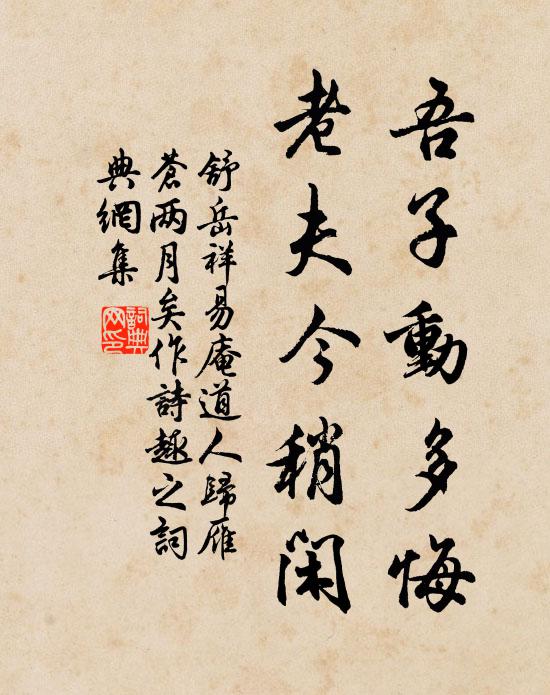 吾子動多悔
老夫今稍閑
舒岳祥易庵道人歸雁
蒼两月矣作詩趣之詞
典網集
詞典
网印